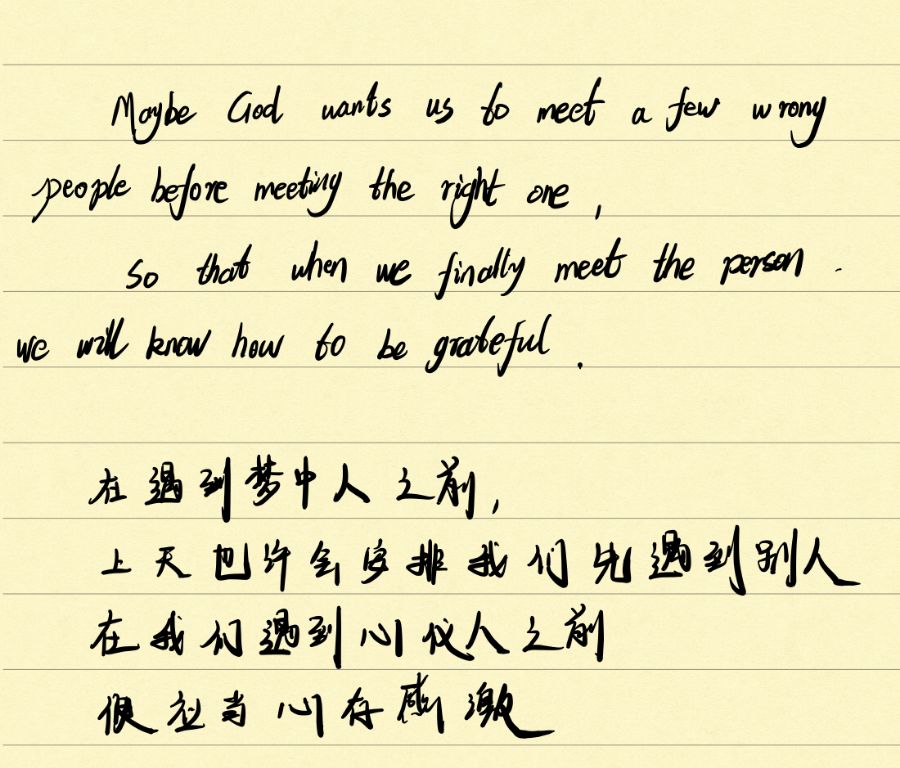 Maybe God wants us to meet a few wrong
people before meeting the right one,
so that when we finally meet the person.
we will know how to be grateful.
在遇到梦中人之前,
上天也许会安排我们先遇到别人
在我们遇到心仪人之前
便应当心存感激